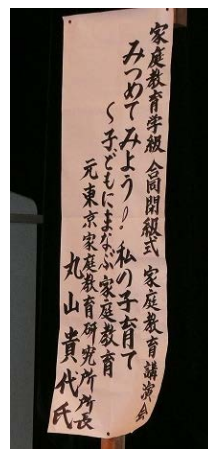 家庭教育学級 合同閉級式 家庭教育講演会
みつめてみよう！私の子育て
～子どもにまなぶ家庭教育
元東京家庭教育研究所所長
丸山貴代氏